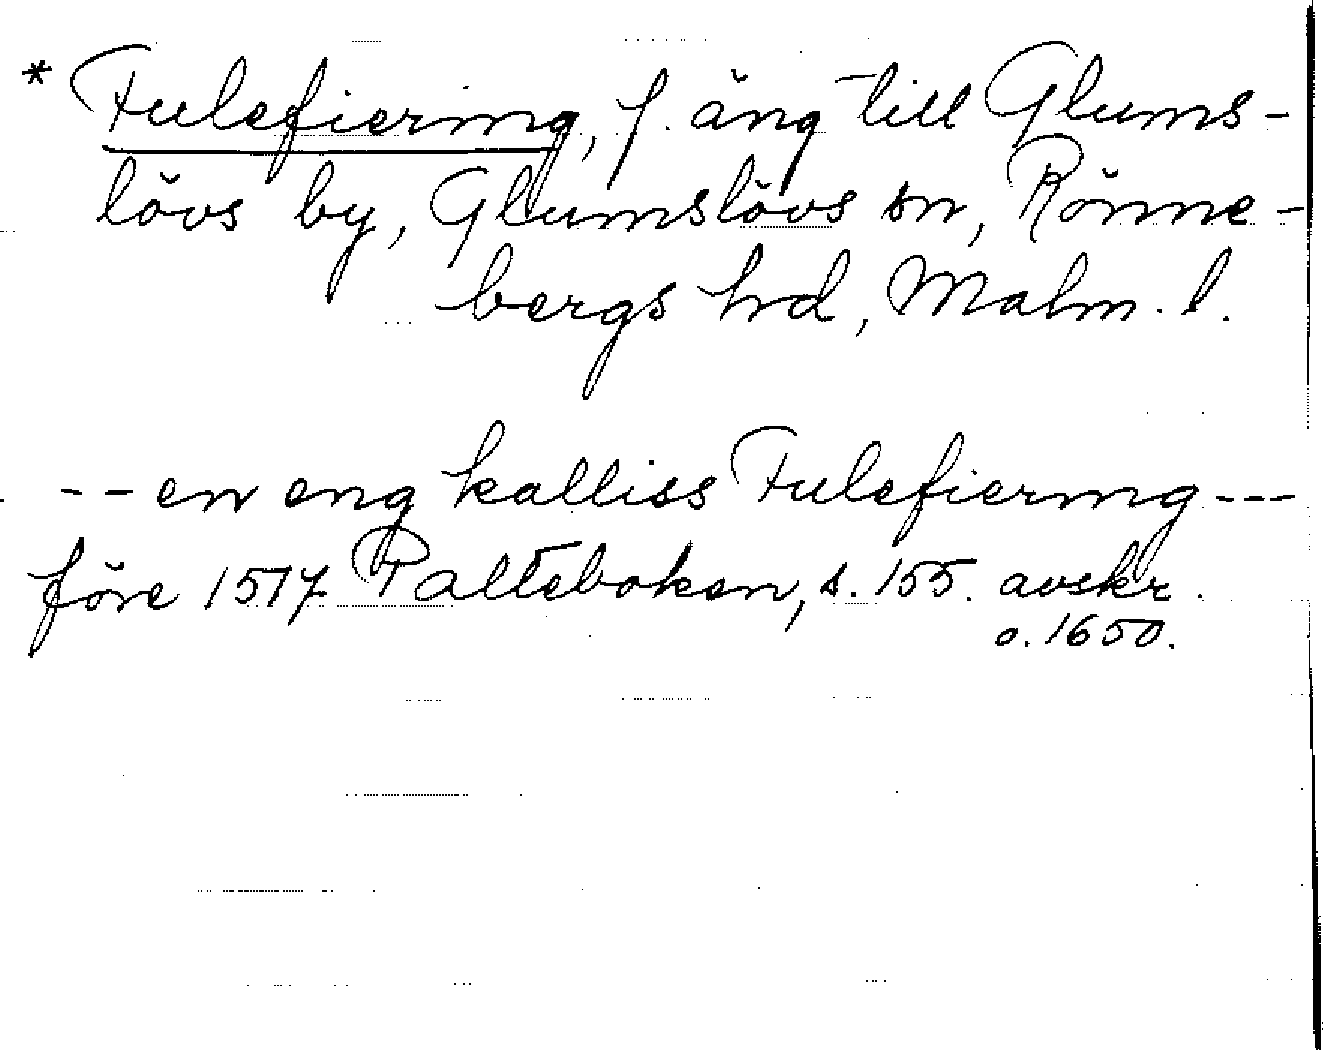 * Fulefiering, f. äng till Glums-
lövs by, Glumslövs sn, Rönne-
bergs hd, Malm. l.
--- en eng kalliss Fulefiering ---
före 1517 Palteboken, s. 155. avskr.
o. 1650.